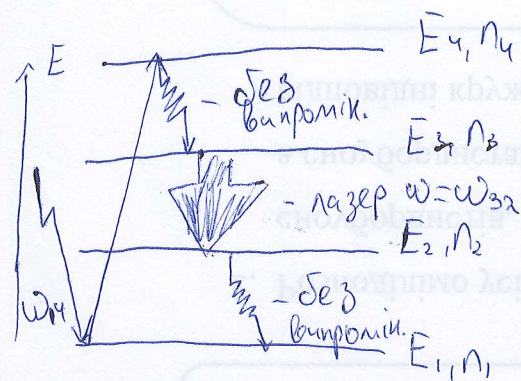 E
E₄, n₄
- без
випромін.
E₃, n₃
- лазер ω=ω₃₂
E₂, n₂
ω₁₄
- без
випромін.
E₁, n₁